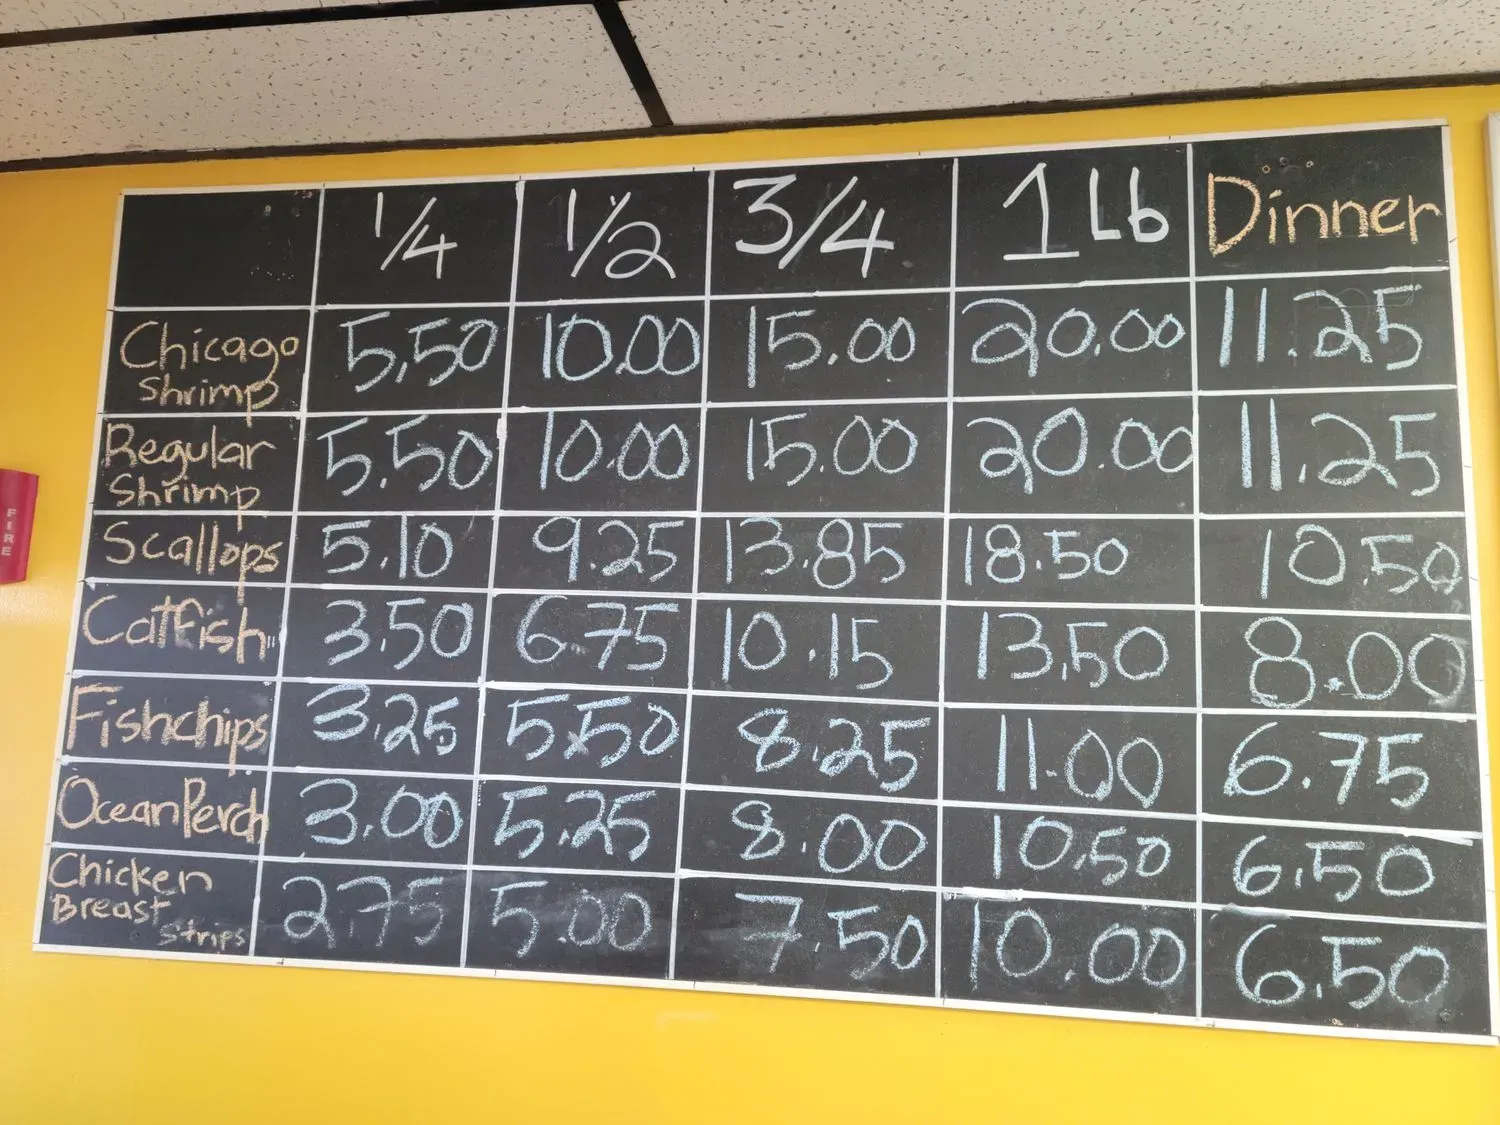 1/4 1/2 3/4 1 Lb Dinner
Chicago 5.50 10.00 15.00 20.00 11.25
Shrimp
Regular 5.50 10.00 15.00 20.00 11.25
Shrimp
Scallops 5.10 9.25 13.85 18.50 10.50
Catfish 3.50 6.75 10.15 13.50 8.00
Fishchips 3.25 5.50 8.25 11.00 6.75
OceanPerch 3.00 5.25 8.00 10.50 6.50
Chicken 2.75 5.00 7.50 10.00 6.50
Breast
Strips
FIRE